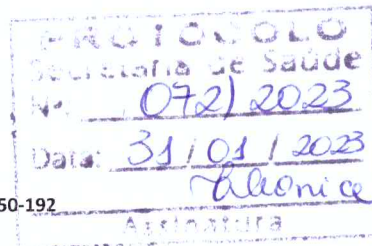 PROTOCOLO
Secretaria de Saúde
Nº. 072/2023
Data: 31/01/2023
50-192
Assinatura